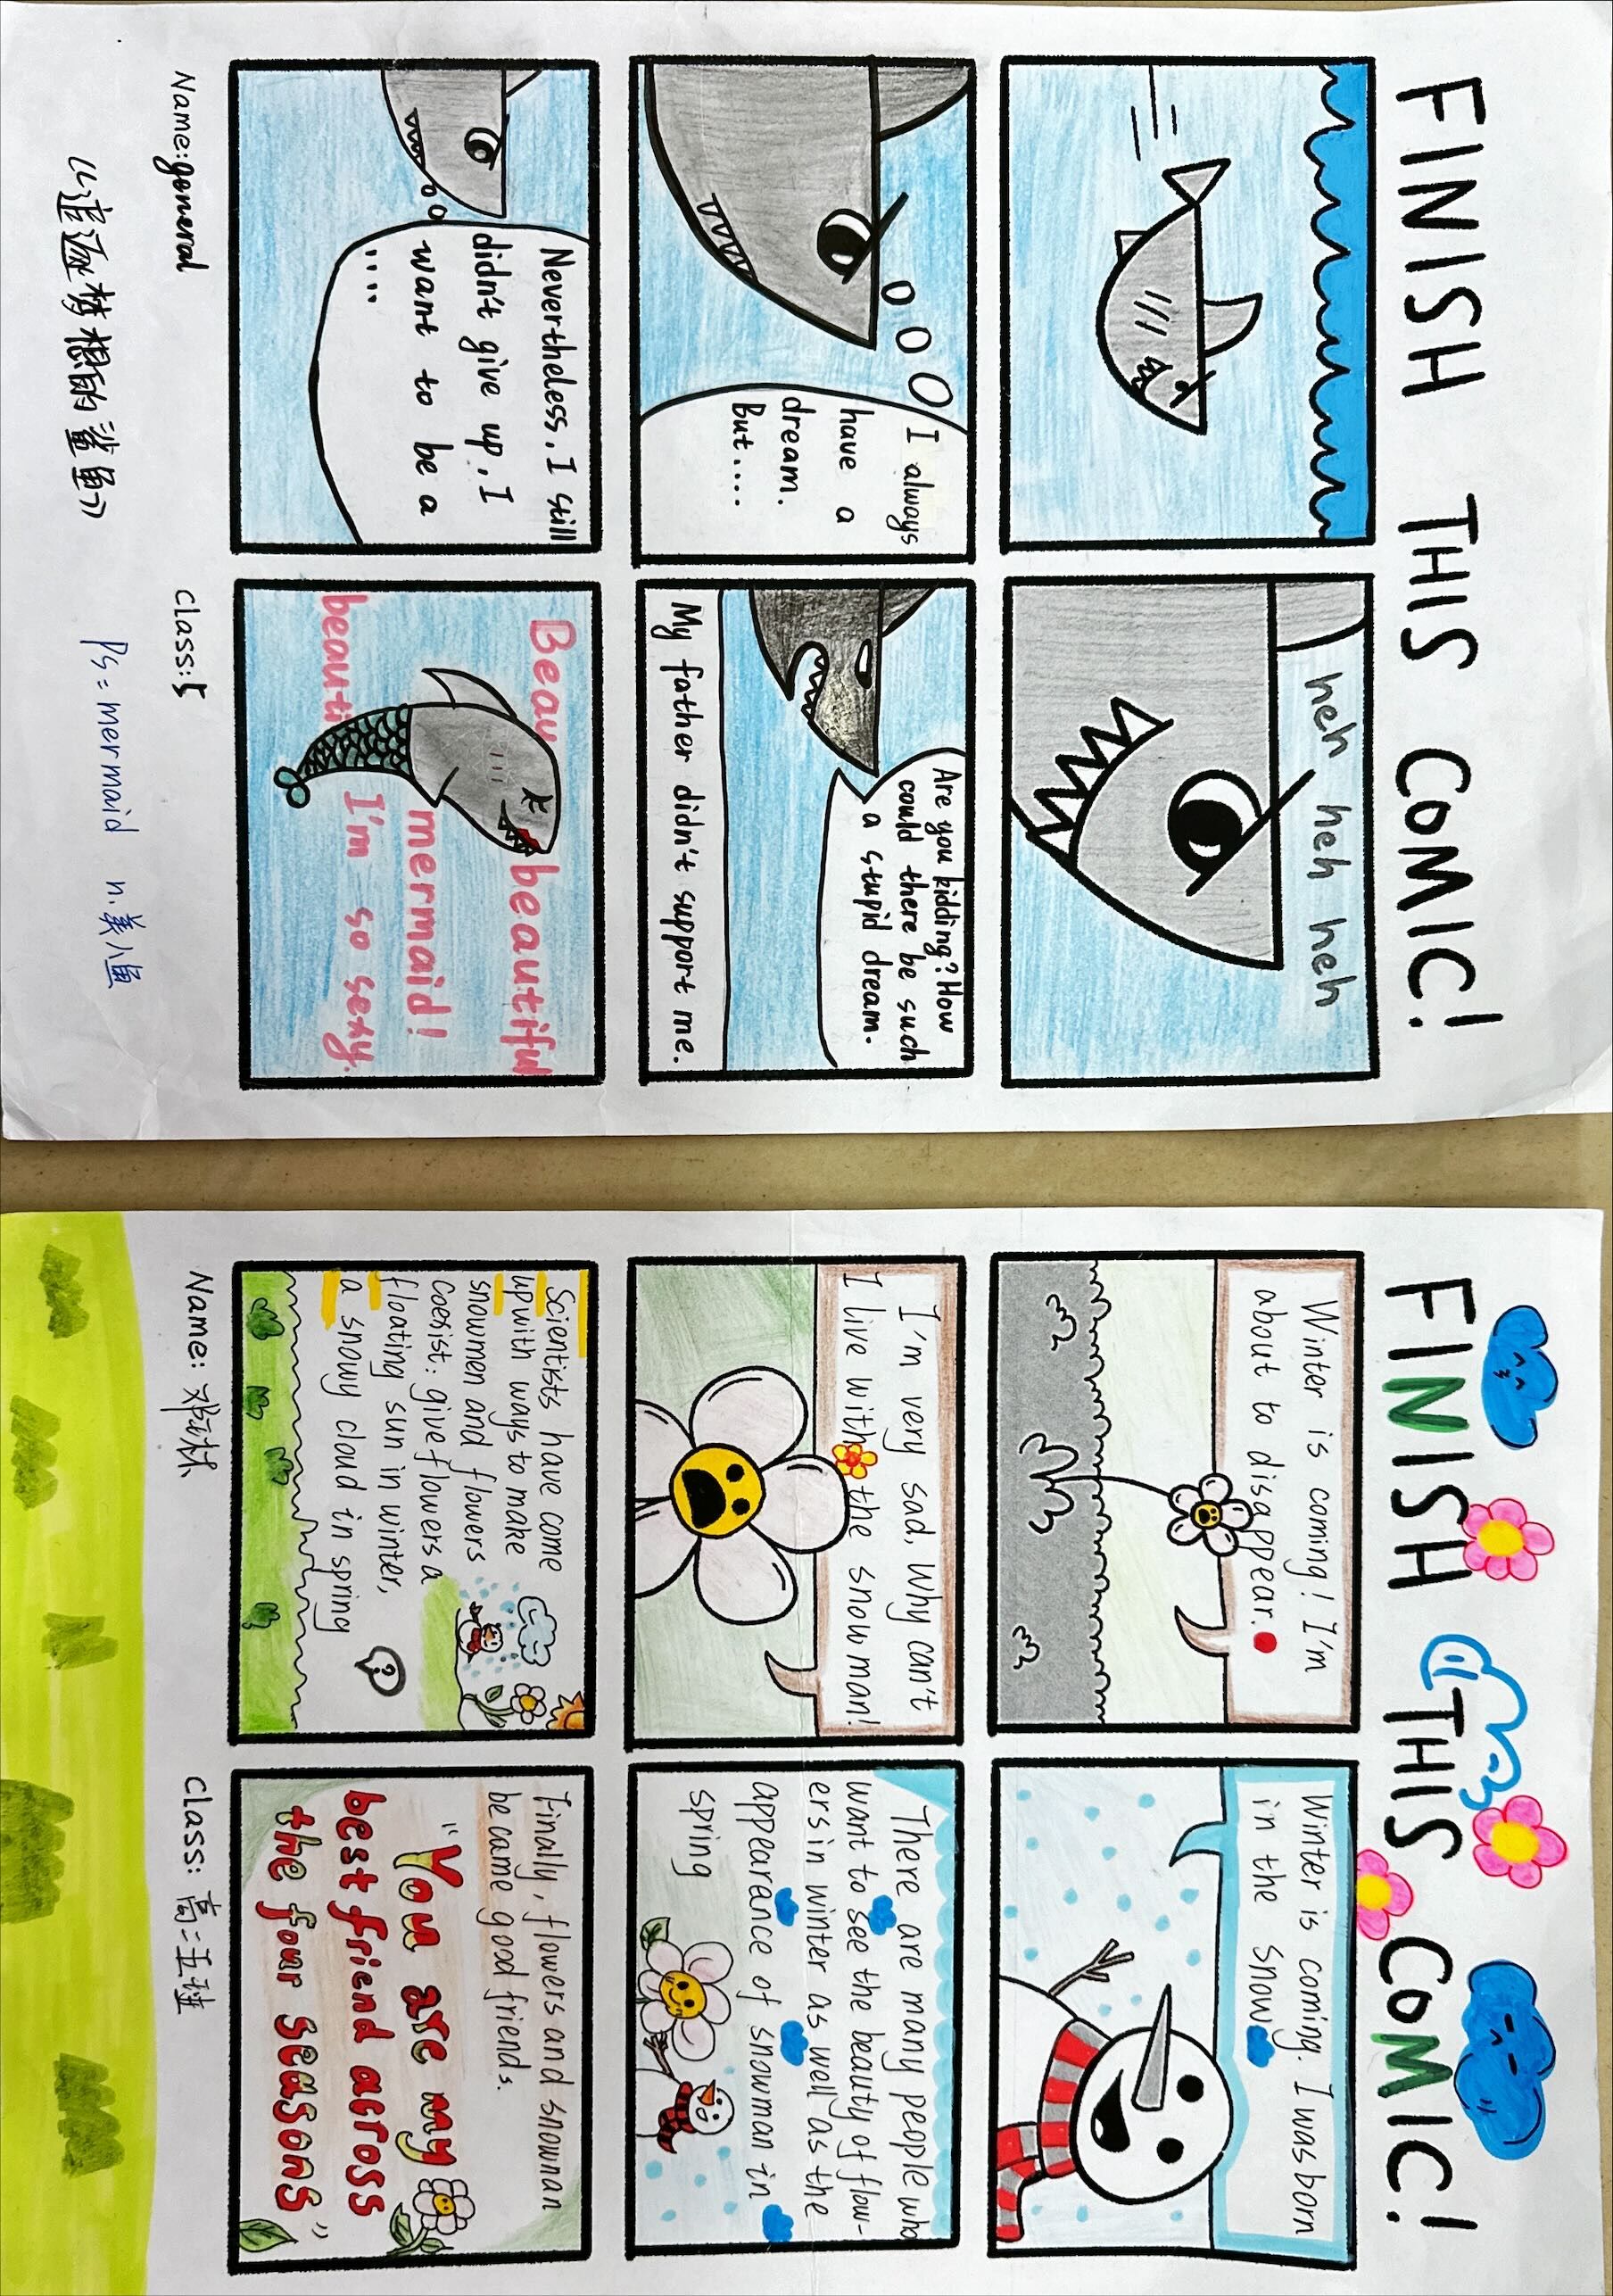 FINISH THIS COMIC!
heh heh heh heh
I always
have a
dream.
But.....
Are you kidding? How
could there be such
a stupid dream.
My father didn't support me.
Nevertheless. I still
didn't give up. I
want to be a
....
Beau beautiful
mermaid!
beauti I'm so sexy.
Name: general
Class: 5
《追逐梦想的鲨鱼》
Ps = mermaid n.美人鱼
FINISH THIS COMIC!
Winter is coming! I'm
about to disappear.
Winter is coming. I was born
in the snow
I'm very sad, Why can't
I live with the snowman!
There are many people who
want to see the beauty of flow-
ers in winter as well as the
appearance of snowman in
spring
Scientists have come
up with ways to make
snowmen and flowers
Coexist: give flowers a
floating sun in winter,
a snowy cloud in spring
?
Finally, flowers and snowman
became good friends.
"You are my
best friend across
the four seasons"
Name: 邓
Class: 高二五班